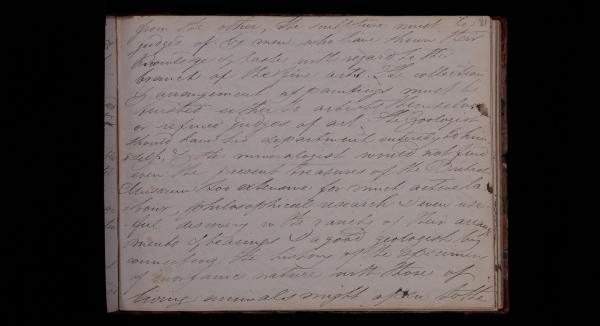 81
from the other, the sculpture must be
judged of by men who have shown their
knowledge & taste with regard to this
branch of the fine arts. The collection
& arrangement of paintings must be
trusted either to artists themselves
or refined judges of art. The zoologist
should have his department entirely to him
self, & the mineralogist would not find
even the present treasures of the British
Museum too extensive for much active la
bour, philosophical research & even use
ful discovery in the variety of their arrange
ments & bearings & a good geologist by
connecting the history of the specimens
of inorganic nature with those of
living animals might open to the